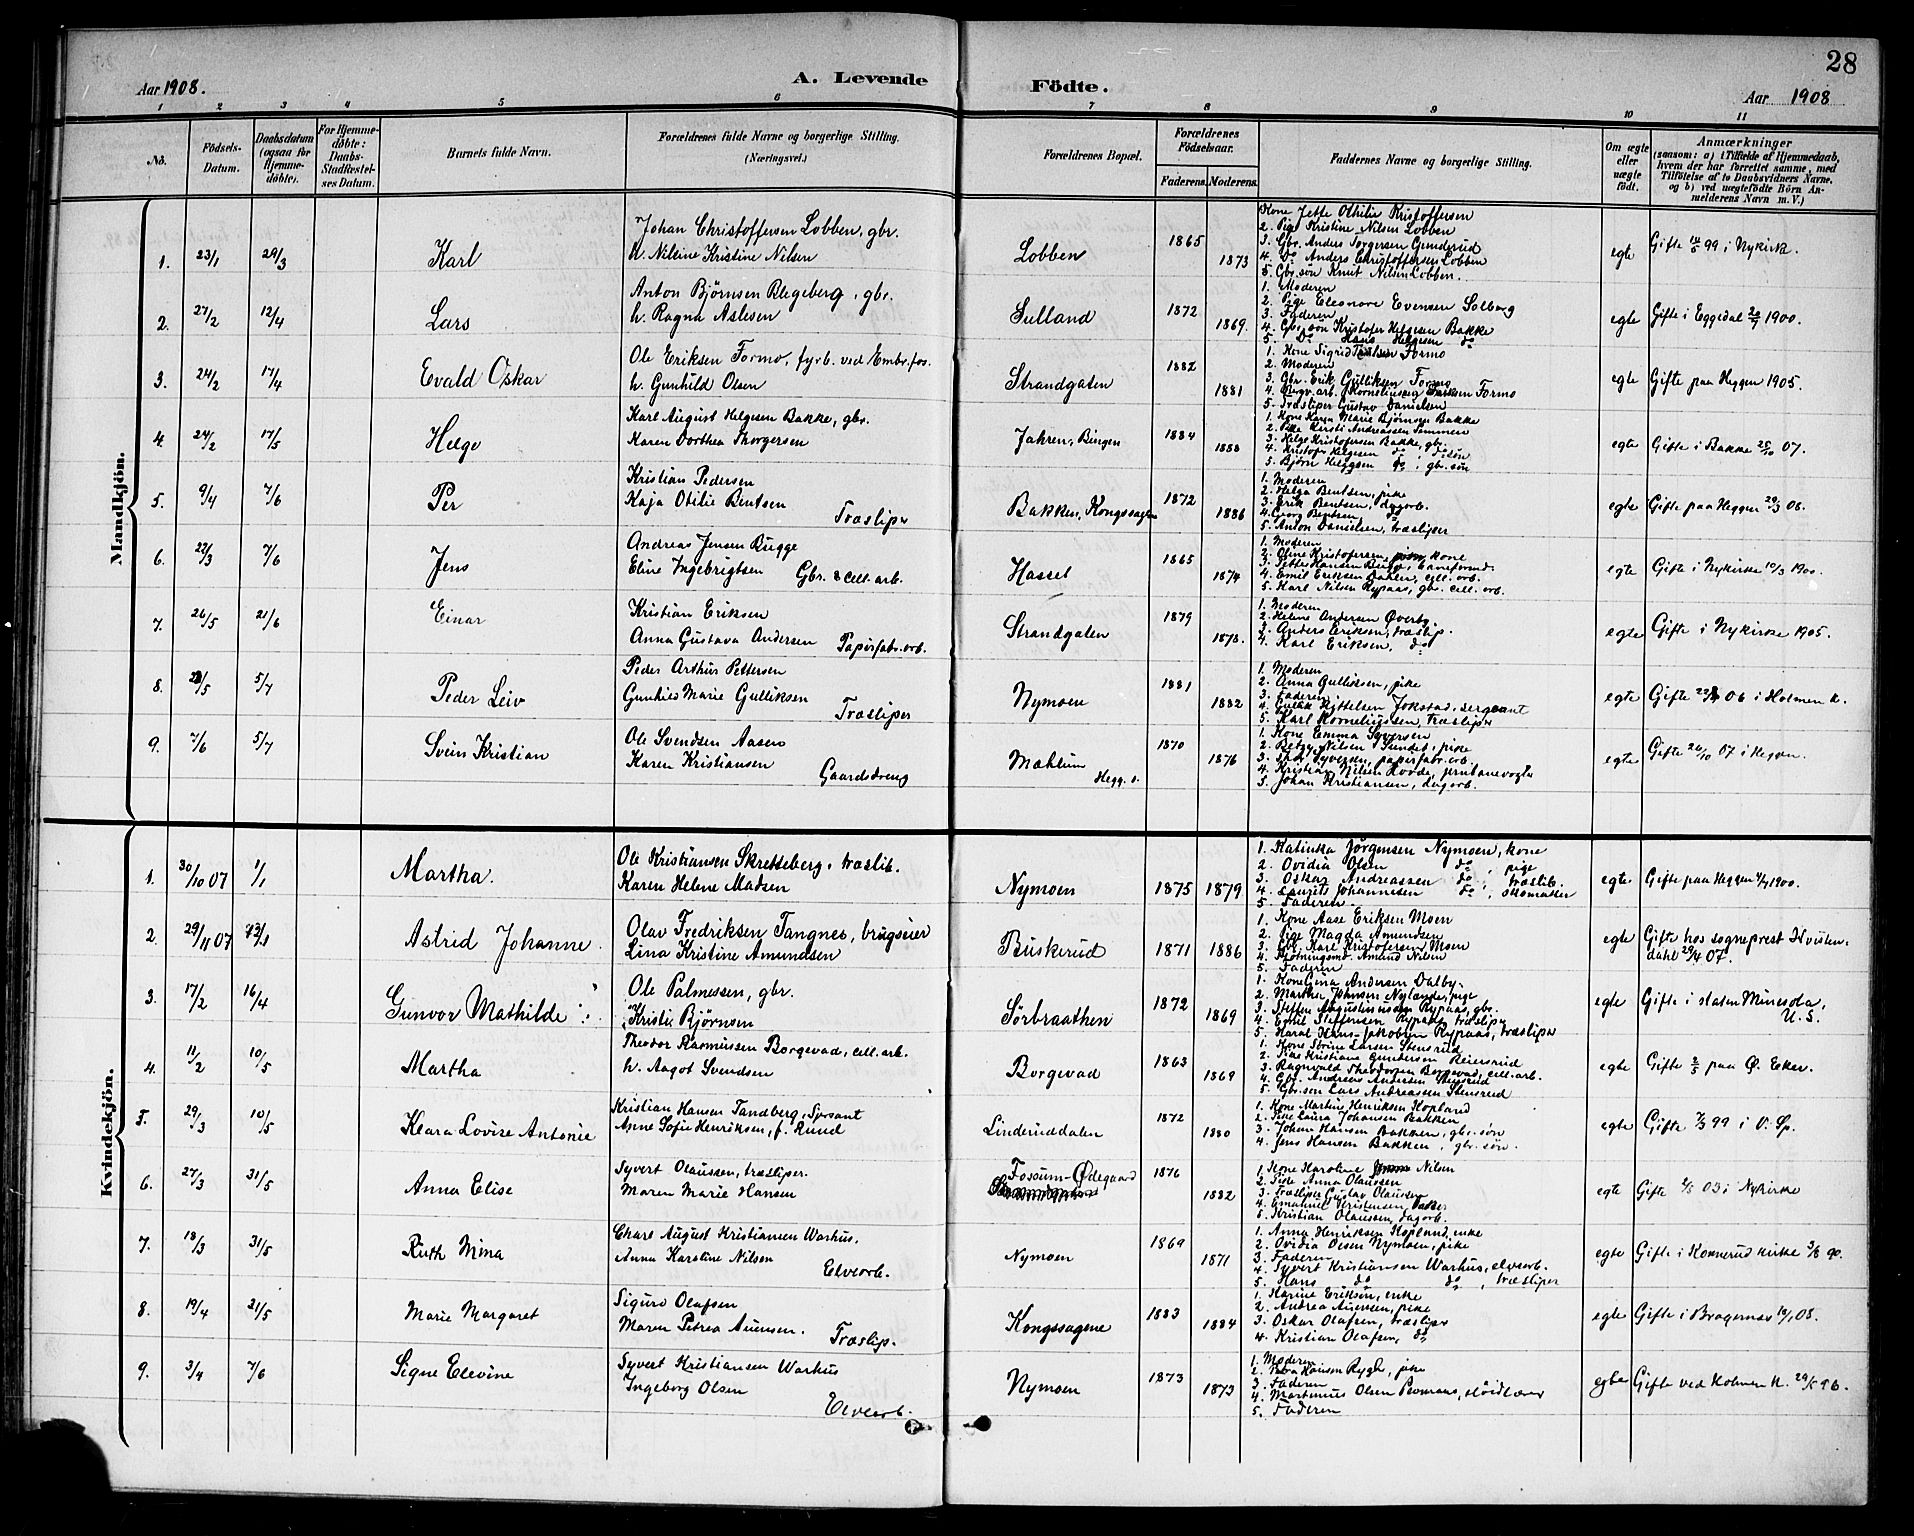 28
Aar 1908.
A. Levende
Födte.
Aar 1908
1 2 3 4 5 6 7 8 9 10 11
No.
Födsels-Datum.
Daabsdatum (ogsaa for Hjemmedöbte).
For Hjemmedöbte: Daabs-Stadfæstelses Datum.
Barnets fulde Navn.
Forældrenes fulde Navne og borgerlige Stilling.
(Næringsvei.)
Forældrenes Bopæl.
Forældrenes Födselsaar.
Faderens. Moderens.
Faddernes Navne og borgerlige Stilling.
Om ægte eller uægte födt.
Anmærkninger
(saasom: a) i Tilfælde af Hjemmedaab, hvem der har forrettet samme, med Tilföielse af to Daabsvidners Navne. og b) ved uægtefödte Börn Anmelderens Navn m. V.)
Mandkjön.
1. 23/1 29/3 Karl
Johan Christoffersen Lobben, gbr.
h. Nilsine Kristine Nilsen
Lobben 1865 1873
Kone Jette Othilie Kristoffersen
2. Pige Kristine Nilsen Lobben
3. Gbr. Anders Torgersen Gunderud
4. Do Anders Christoffersen Lobben
5. Gbr.søn Knut Nilsen Lobben.
egte Gifte 99 i Nykirk.
2. 27/2 12/4 Lars
Anton Bjørnsen Blegeberg, gbr.
h. Ragna Aslesen
Sulland 1872 1869.
1. Moderen
2. Pige Eleonore Evensen Solberg
3. Faderen
4. Gbr.søn Kristofer Helgesen Bakke
5. Do Hans Helgesen do
egte Gifte i Eggedal 1900.
3. 24/2 17/4 Evald Oskar
Ole Eriksen Formo, fyrb. ved Embr. fos.
h. Gunhild Olsen
Strandgaten 1882 1881
1. Kone Sigrid Formo
2. Moderen
3. Gbr. Erik Gulliksen Formo
4. Formo
5. Træsliper Gustav Danielsen
egte Gifte paa Heggen 1905.
4. 24/2 17/5 Helge
Karl August Helgesen Bakke, gbr.
Karen Dorthea Thorgersen
Jahren, Bingen 1884 1888
1. Kone Karen Marie Bjørnsen Bakke
2. Pike Kirsti Andreassen
3. Helge Kristofersen Bakke, gbr.
4. Kristofer Helgesen do, do søn
5. Bjørn Helgesen do, gbr. søn
egte Gifte i Bakke 25/10 07.
5. 9/4 7/6 Per
Kristian Pedersen
Kaja Otilie Bentsen
Træsliper
Bakken, Kongssagen 1872 1886
1. Moderen
2. Helga Bentsen, pike
3. Erik Bentsen, dagarb.
4. Georg Bentsen do
5. Anton Danielsen, træsliper
egte Gifte paa Heggen 29/3 08.
6. 22/3 7/6 Jens
Andreas Jensen Bugge
Eline Ingebrigtsen Gbr. & cell. arb.
Hassel 1865 1874
1. Moderen
2. Oline Kristofersen, kone
3. Petter Hansen
4. Emil Eriksen cell. arb.
5. Karl Nilsen Rypaas, gbr. cell. arb.
egte Gifte i Nykirke 10/3 1900.
7. 26/5 21/6 Einar
Kristian Eriksen
Anna Gustava Andersen Papirfabr.arb.
Strandgaten 1879 1878.
1. Moderen
2. Helene Andersen Øverby.
3. Anders Eriksen, træslip.
4. Karl Eriksen, do
egte Gifte i Nykirke 1905.
8. 5/7 Peder Leiv
Peder Arthur Pettersen
Gunhild Marie Gulliksen
Træsliper
Nymoen 1881 1882
1. Moderen
2. Anna Gulliksen, pike
3. Faderen
4. Kittelsen Jokstad, sergeant
5. Karl Korneliussen, træsliper
egte Gifte 06 i Holmen k.
9. 7/6 5/7 Svein Kristian
Ole Svendsen Aasen
Karen Kristiansen
Gaardsdreng
Mæhlum
Hegg. s. 1870 1876
1. Kone Emma Syversen
2. Betzy Nilsen Sundet, pike
3. Syversen, papirfabr.arb.
4. Kristian Nilsen
5. Johan Kristiansen, dagarb.
egte Gifte 26/10 07 i Heggen.
Kvindekjön.
1. 30/10 07 1/1 Martha.
Ole Kristiansen Skretteberg, træslib.
Karen Helene Madsen
Nymoen 1875 1879
1. Katinka Jörgensen Nymoen, kone
2. Ovidia Olsen do, pige
3. Oskar Andreassen do, træslib.
4. Laurits Johannesen do, skomaker
5. Faderen.
egte Gifte paa Heggen 1900.
2. 29/11 07 Astrid Johanne.
Olav Fredriksen Tangnes, brugseier
Lina Kristine Amundsen
Buskerud 1871 1886
1. Kone Aase Eriksen Moen
2. Pige Magda Amundsen
3. Gbr. Karl Kristofersen Moen
4. Amund Nilsen
5. Faderen
egte Gifte hos sogneprest Hvisten-
dahl 29/4 07.
3. 17/2 16/4 Gunvor Mathilde
Ole Palmessen, gbr.
Kristi Bjørnsen
Sørbraathen 1872 1869
1. Kone Gina Andersen Dalby.
2. Marthe Johnsen Nylænde, pige
3. Steffen Augustinussen Rypaas, gbr.
4. Emil Steffensen Rypaas, træsliper
5. Haral Hans. Jakobsen Rypaas, træsliper
egte Gifte i staten Minesota,
U.S.
4. 11/2 10/5 Martha
Theodor Rasmussen Borgevad, cell. arb.
h. Aagot Svendsen
Borgevad 1863 1869
1. Kone Sørine Larsen Stensrud
2. Pike Kristiane Gundersen Beiersrud
3. Ragnvald Theodorsen Borgevad, cell. arb.
4. Gbr. Andreas Andersen Stensrud
5. Gbr.søn Lars Andreassen Stensrud
egte Gifte 2/5 paa Ø. Eker.
5. 29/3 10/5 Klara Lovise Antonie
Kristian Hansen Tandberg, Sersant
Anne Sofie Henriksen, f. Rund
Linderuddalen 1872 1880
1. Kone Martine Henriksen Hopland
2. Pike Laura Johansen Bakken
3. Johan Hansen Bakken, gbr. søn
4. Jens Hansen Bakken, gbr. søn.
egte Gifte 99 i
6. 27/3 31/5 Anna Elise
Syvert Olaussen, træsliper.
Maren Marie Hansen
Fossum-Ødegaard 1876 1882
1. Kone Karoline Nilsen
2. Pike Anna Olaussen
3. Træsliper Gustav Olaussen
4. Emanuel Kristensen,
5. Kristian Olaussen, dagarb.
egte Gifte 03 i Nykirke
7. 18/3 31/5 Ruth Mina
Charl August Kristiansen Warhus.
Anna Karoline Nilsen
Elvearb.
Nymoen 1869 1871
1. Anna Henriksen Hopland, enke
2. Ovidia Olsen Nymoen, pike
3. Faderen
4. Syvert Kristiansen Warhus, elvearb.
5. Hans do do, træsliper
egte Gifte i Konnerud kirke 3/6 90.
8. 19/4 21/5 Marie Margaret
Sigurd Olafsen
Maren Petrea Auensen.
Træslip.
Kongssagene 1883 1884
1. Karine Eriksen, enke
2. Andrea Auensen, pike
3. Oskar Olafsen, træsliper
4. Kristian Olafsen, do
egte Gifte i Bragernæs 19/1 08.
9. 3/4 7/6 Signe Elevine
Syvert Kristiansen Warhus
Ingeborg Olsen
Elvearb.
Nymoen 1873 1873
1. Moderen
2. Hansen Rygh, pike
3. Faderen
4. Martinius Olsen
5. Faderen
egte Gifte ved Holmen k. 29/5 96.